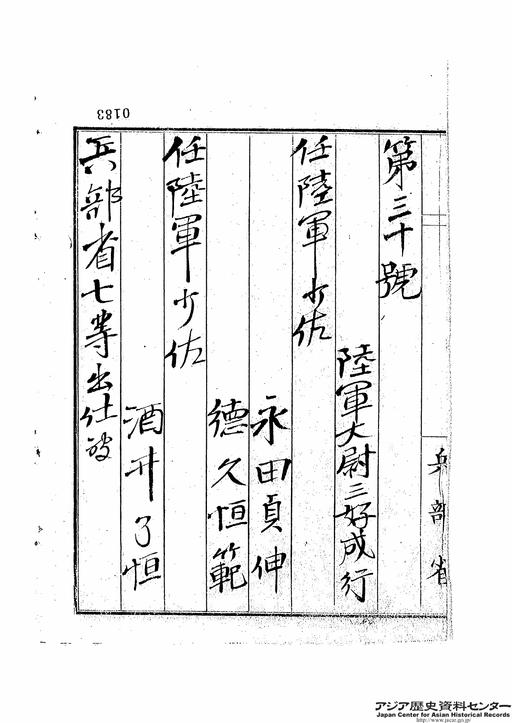 0183
兵部省
第三十號
陸軍大尉三好成行
任陸軍少佐
永田貞伸
德久恒範
任陸軍少佐
酒井了恒
兵部省七等出仕被
アジア歴史資料センター
Japan Center for Asian Historical Records
http://www.jacar.go.jp/